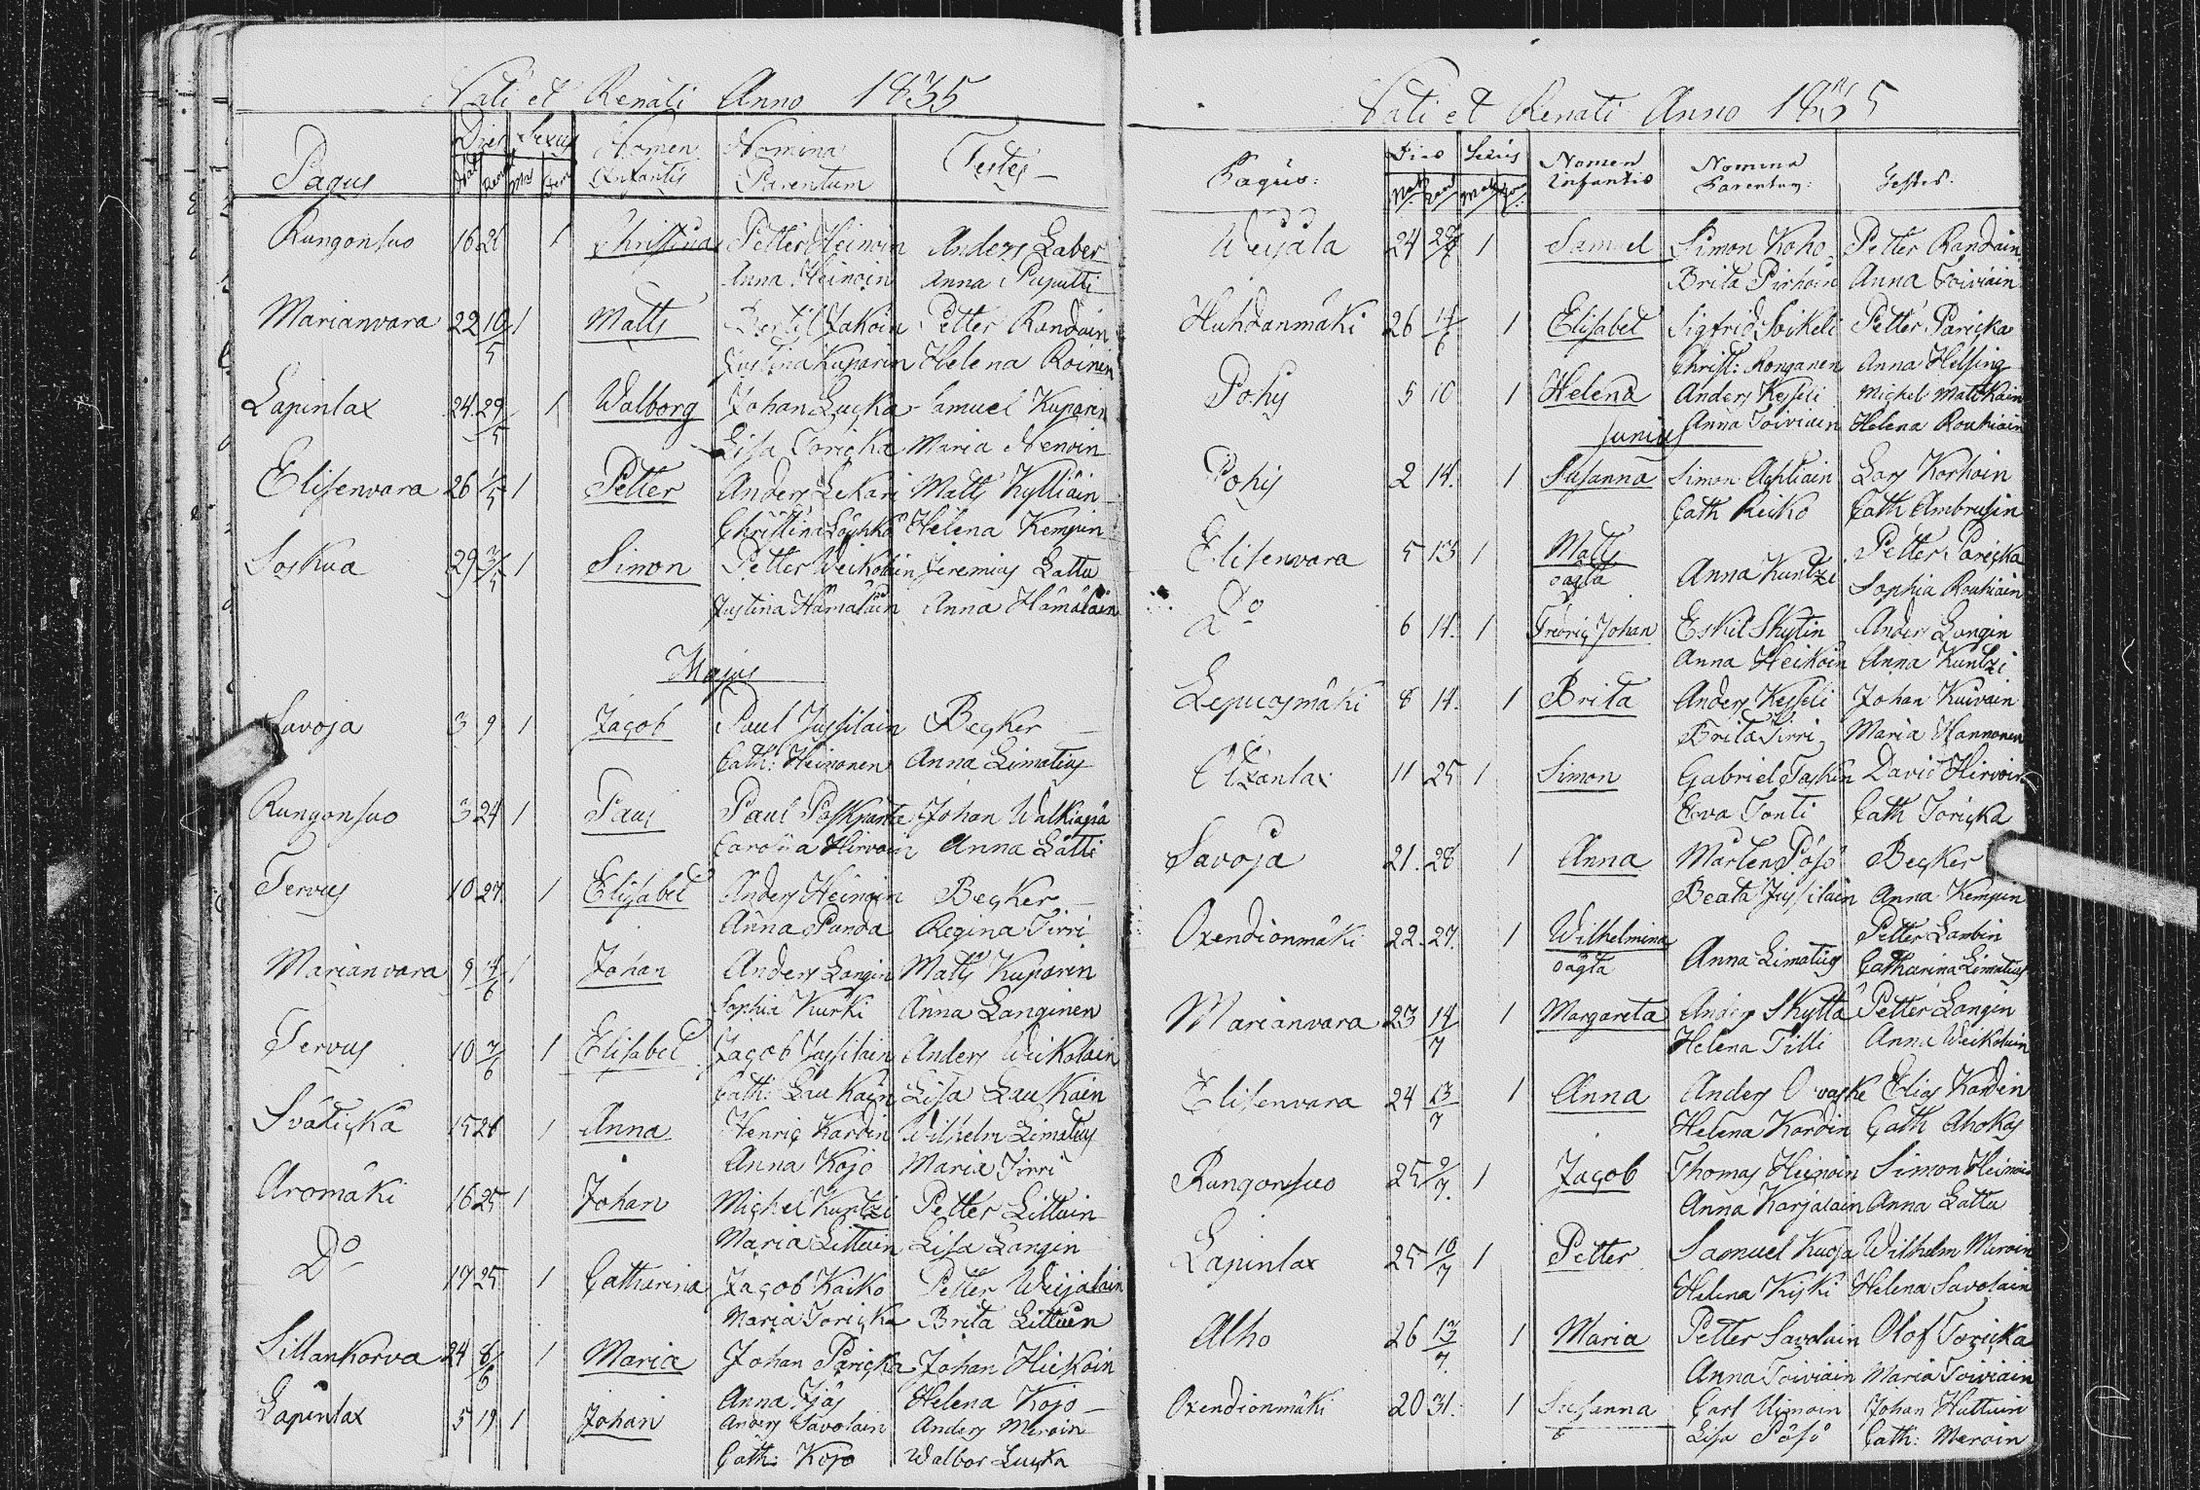 Nati et Renati Anno 1835
Pagus Dies Sexus Nomen Infantis Nomina Parentum Testes
Nat. Ren. Ma Fem
Rungonsuo 16 21 1 Christina Petter Heinoin Anders Laber
Anna Heinoin Anna Puputti
Marianvara 22 10/5 1 Matts Bertil Jakoin Petter Randain
Justina Kuparin Helena Roinin
Lapinlax 24 29/5 1 Walborg Johan Lucka Samuel Kuparin
Lisa Toricka Maria Nenoin
Elisenvara 26 1/5 1 Petter Anders Lekari Matts Kylliäin
Christina Helena Kempin
Soskua 29 3/5 1 Simon Petter Weikolain Jeremias Lattu
Justina Hämäläin Anna Hämäläin
Majus
Savoja 3 9 1 Jacob Paul Jussilain Becker
Cath: Heinonen Anna Limatius
Rungonsuo 3 24 1 Paul Paul Johan Walkiapä
Carolina Hirvoin Anna Lätti
Tervus 10 27 1 Elisabet Anders Heinoin Becker
Anna Panda Regina Tirri
Marianvara 9 1 Johan Anders Langin Matts Kuparin
Sophia Kurki Anna Langinen
Tervus 10 7/6 1 Elisabet Jacob Jussilain Anders Weikolain
Cath: Laukain Lisa Laukain
Svätickä 15 26 1 Anna Henric Kardin Wilhelm Limatius
Anna Kojo Maria Tirri
Aromäki 16 25 1 Johan Michel Kuntzi Petter Littuin
Maria Littuin Lisa Langin
Do 17 25 1 Catharina Jacob Kaiko Petter Weijalain
Maria Toricka Brita Littuin
Sillankorva 24 8/6 1 Maria Johan Paricka Johan Heikoin
Anna Ijäs Helena Kojo
Lapinlax 5 19 1 Johan Anders Savolain Anders Meroin
Cath: Kojo Walbor Lucka
Nati et Renati Anno 1835
Pagus: Dies Sexus Nomen Infantis Nomina Parentum: Testes.
Nat Ren Mas Fem
Weijala 24 1 Samuel Simon Koho Petter Randain
Brita Pirhoin Anna Toiviain
Huhdanmäki 26 1 Elisabet Sigfrid Soikeli Petter Paricka
Christ: Ronganen Anna Helsing
Pohy 5 10 1 Helena Anders Kesseli Michel Matikain
Anna Toiviain Helena Rouhiain
Junius
Pohy 2 14. 1 Susanna Simon Aghtiain Lars Korhoin
Cath Reiko Cath Ambrusin
Elisenvara 5 13 1 Matts Petter Paricka
oägta Anna Kuntzi Sophia Rouhiain
Do 6 14. 1 Fredric Johan Eskil Skytin Anders Langin
Anna Heikoin Anna Kuntzi
Lepucosmäki 8 14. 1 Brita Anders Kesseli Johan Kuivain
Brita Tirri Maria Hannonen
11 25 1 Simon Gabriel Taskin David Hirvoin
Ewa Tonti Cath Toricka
Savoja 21. 28 1 Anna Mårten Pöső Becker
Beata Jussilain Anna Kempin
Oxendionmäki 22. 27. 1 Wilhelmina Petter Lambin
oägta Anna Limatius Catharina Limatius
Marianvara 23 14/7 1 Margareta Anders Skyttä Petter Langin
Helena Tilli Anna Weikolain
Elisenvara 24 13/7 1 Anna Anders Ovaske Elias Kardin
Helena Kardin Cath Ahokas
Rungonsuo 25 2/7. 1 Jacob Thomas Heinoin Simon Heinoin
Anna Karjalain Anna Lattu
Lapinlax 25 10/7 1 Petter Samuel Kuoja Wilhelm Meroin
Helena Kiski Helena Savolain
Alho 26 17/7. 1 Maria Petter Savolain Olof Toricka
Anna Toiviain Maria Toiviain
Oxendionmäki 20 31. 1 Susanna Carl Uimoin Johan Huttuin
Lisa Pösö Cath: Meroin